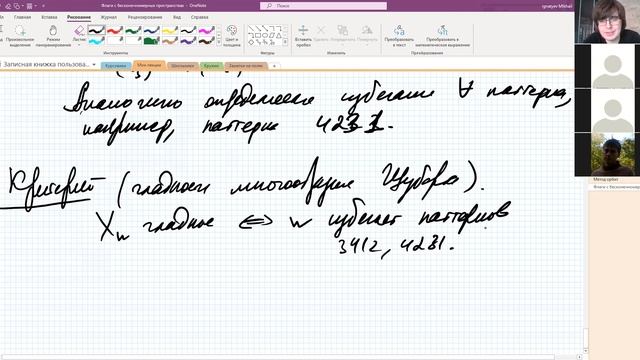 Флаги с бесконечномерных пространствах - OneNote
Поиск
ignatyev Mikhail
Файл Главная Вставка Рисование Журнал Рецензирование Вид Справка
Произвольное выделение
Режим панорамирования
Инструменты
Фигуры
Вставить пробел
Изменить
Преобразовать в текст
Преобразовать в математическое выражение
Преобразование
Записная книжка пользова...
Курсовики Мои лекции Школьники Кружки Заметки на полях
Аналогично определяется избегание ∀ паттерна,
например, паттерна 4231.
Критерий (гладкости многообразия Шуберта).
X_w гладкое ⇔ w избегает паттернов
3412, 4231.
Метод орбит
Флаги с бесконечномер